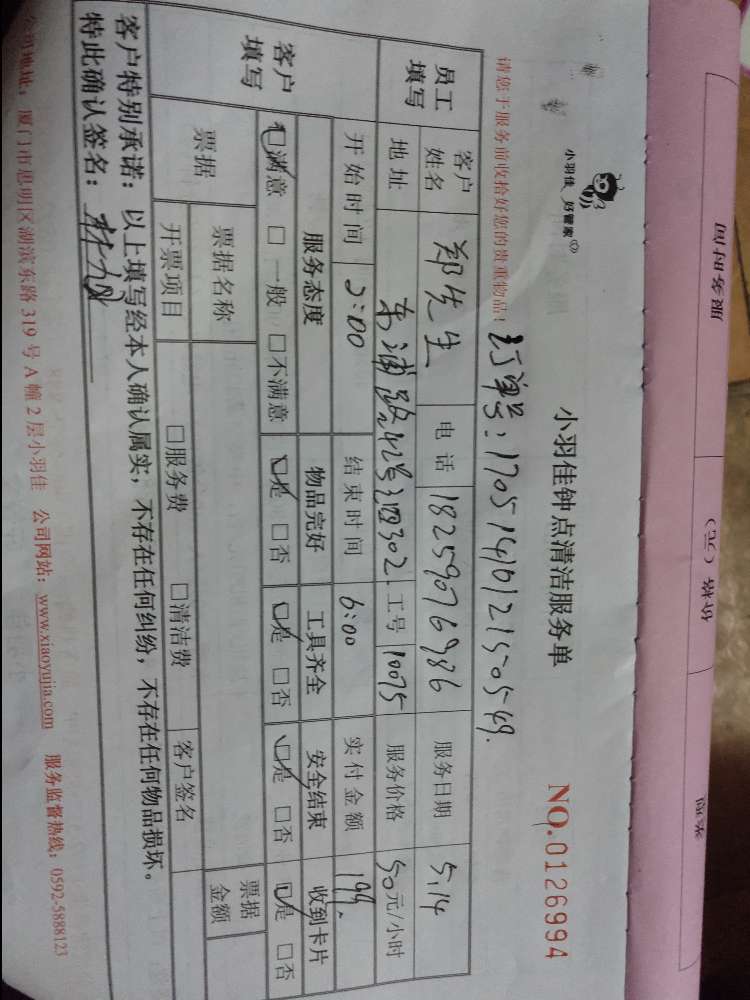 小羽佳 好管家
小羽佳钟点清洁服务单
NO.0126994
请您于服务前收拾好您的贵重物品！
订单号：1705141012150549.
员工填写
客户姓名 郑先生 电话 18259076986 服务日期 5.14
地址 东浦路 302. 工号 10075 服务价格 50元/小时
开始时间 2:00 结束时间 6:00 实付金额 199.
客户填写
服务态度 物品完好 工具齐全 安全结束 收到卡片
☑满意 □一般 □不满意 ☑是 □否 ☑是 □否 ☑是 □否 ☑是 □否
票据 票据名称 票据金额
开票项目 □服务费 □清洁费 客户签名
客户特别承诺：以上填写经本人确认属实，不存在任何纠纷，不存在任何物品损坏。
特此确认签名：
公司地址：厦门市思明区湖滨东路319号A幢2层小羽佳 公司网站：www.xiaoyujia.com 服务监督热线：0592-5888123